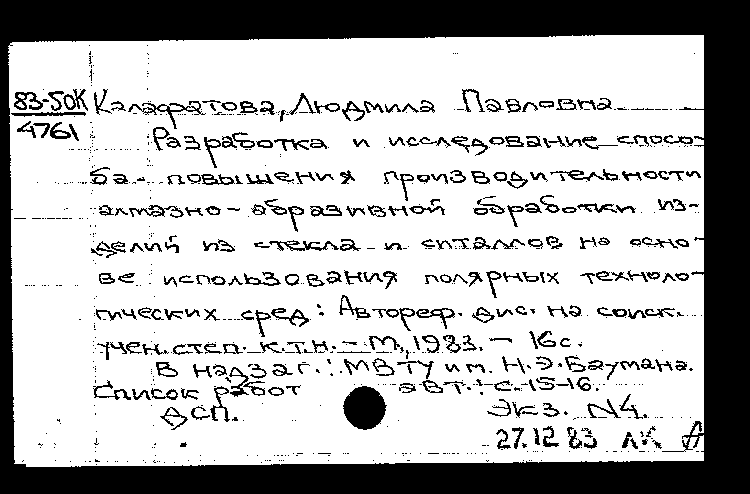 83-50К Калафатова, Людмила Павловна
4761 Разработка и исследование спосо-
ба повышения производительности
алмазно-абразивной обработки из-
делий из стекла и ситаллов на осно-
ве использования полярных техноло-
гических сред: Автореф. дис. на соиск.
учен. степ. к.т.н. - М., 1983. - 16с.
В надзаг.: МВТУ им. Н.Э.Баумана.
Список работ авт.: с.15-16.
ДСП. Экз. N4.
27.12 83 ЛК А